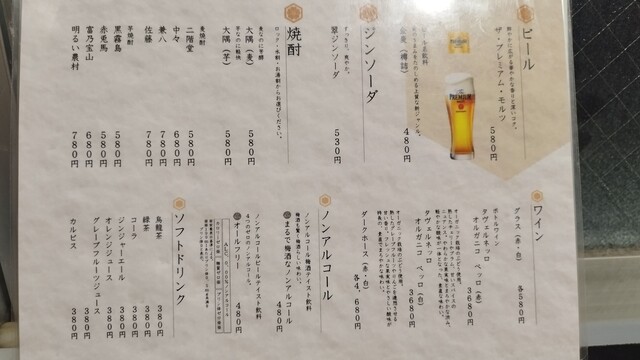 ビール
鮮やかに広がる華やかな香りと深いコク。
ザ・プレミアム・モルツ
580円
金麦（樽詰）
480円
ジンソーダ
すっきり、爽やか。
翠ジンソーダ
530円
焼酎
ロック・水割・お湯割からお選びください。
麦なのに芋酵
大隅（麦） 580円
芋なのに軽快
大隅（芋） 580円
麦焼酎
二階堂 580円
中々 680円
兼八 780円
佐藤 780円
芋焼酎
黒霧島 580円
赤兎馬 580円
富乃宝山 680円
明るい農村 780円
ワイン
グラス（赤・白） 各580円
ボトルワイン
タヴェルネッロ
オルガニコ ペッロ（赤）
3680円
タヴェルネッロ
オルガニコ ペッロ（白）
3680円
ダークホース（赤・白） 各4,680円
ノンアルコール
ノンアルコール梅酒テイスト飲料
梅酒を驚く梅酒らしい味わい。
まるで梅酒なノンアルコール
480円
ノンアルコールビールテイスト飲料
4つのゼロのノンアルコール。
オールフリー
480円
ソフトドリンク
烏龍茶 380円
緑茶 380円
コーラ 380円
ジンジャーエール 380円
オレンジジュース 380円
グレープフルーツジュース 380円
カルピス 380円